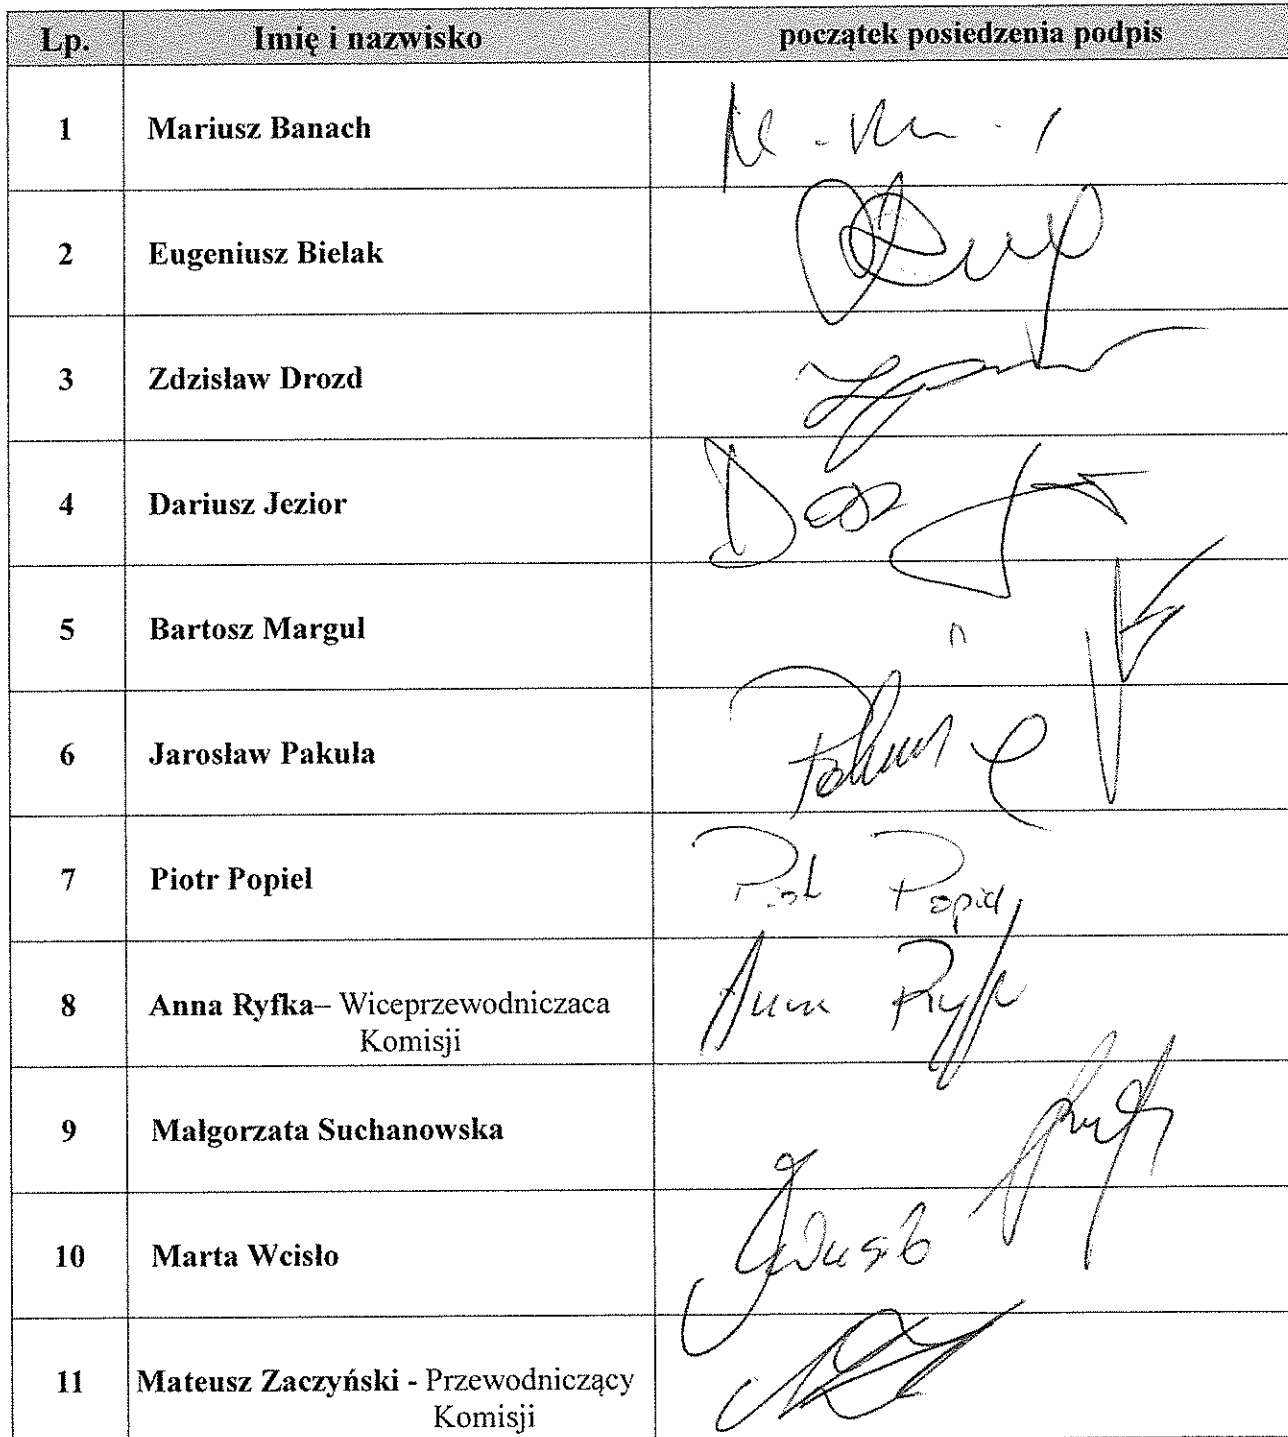 Lp. Imię i nazwisko początek posiedzenia podpis
1 Mariusz Banach
2 Eugeniusz Bielak
3 Zdzisław Drozd
4 Dariusz Jezior
5 Bartosz Margul
6 Jarosław Pakuła
7 Piotr Popiel Piotr Popiel
8 Anna Ryfka– Wiceprzewodniczaca
Komisji
Anna
9 Małgorzata Suchanowska
10 Marta Wcisło
11 Mateusz Zaczyński - Przewodniczący
Komisji